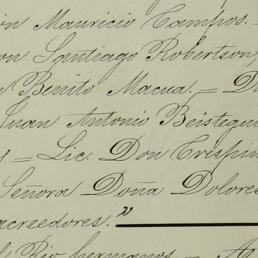 on Mauricio Campos.
on Santiago Robertson,
Benito Macua. = D
Juan Antonio Béistegui
s = Lic. Don Crispin
Señora Doña Dolores
acreedores."
Rio hermanos